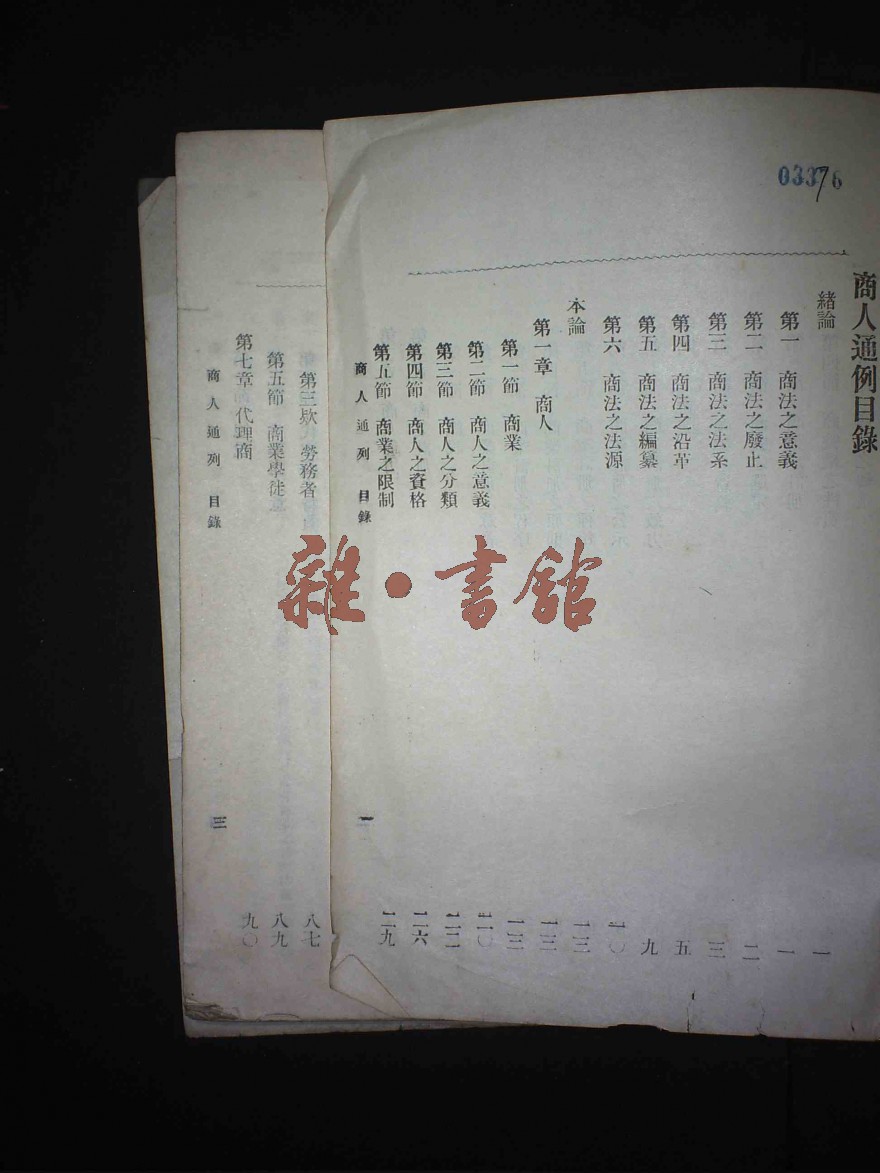 03376
商人通例目錄
緒論 一
第一 商法之意義 一
第二 商法之廢止 二
第三 商法之法系 三
第四 商法之沿革 五
第五 商法之編纂 九
第六 商法之法源 一〇
本論 一三
第一章 商人 一三
第一節 商業 一三
第二節 商人之意義 二〇
第三節 商人之分類 二二
第四節 商人之資格 二六
第五節 商業之限制 二九
商人通列 目錄 一
第三欵 勞務者 八七
第五節 商業學徒 八九
第七章 代理商 九〇
商人通列 目錄 三
雜·書館